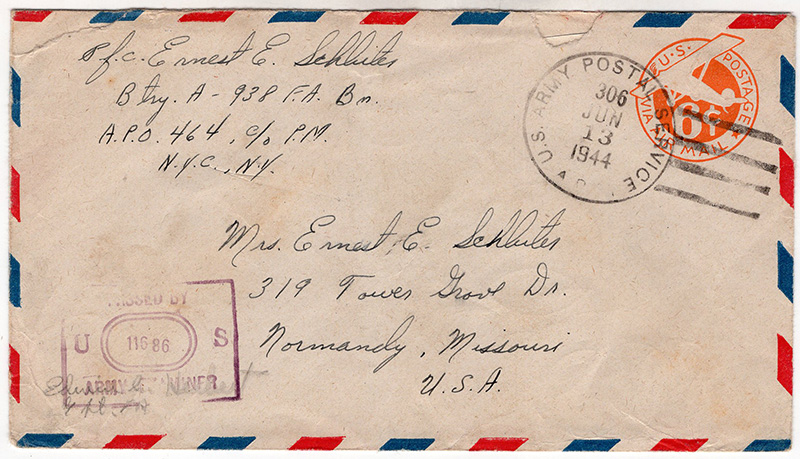 Pfc. Ernest E. Schluter
Btry. A - 938 F.A. Bn.
A.P.O. 464, c/o P.M.
N.Y.C., N.Y.
U.S. ARMY POSTAL SERVICE
306
JUN
13
1944
U.S. POSTAGE
6¢
VIA AIR MAIL
Mrs. Ernest E. Schluter
319 Tower Grove Dr.
Normandy, Missouri
U.S.A.
PASSED BY
U 11686 S
ARMY EXAMINER